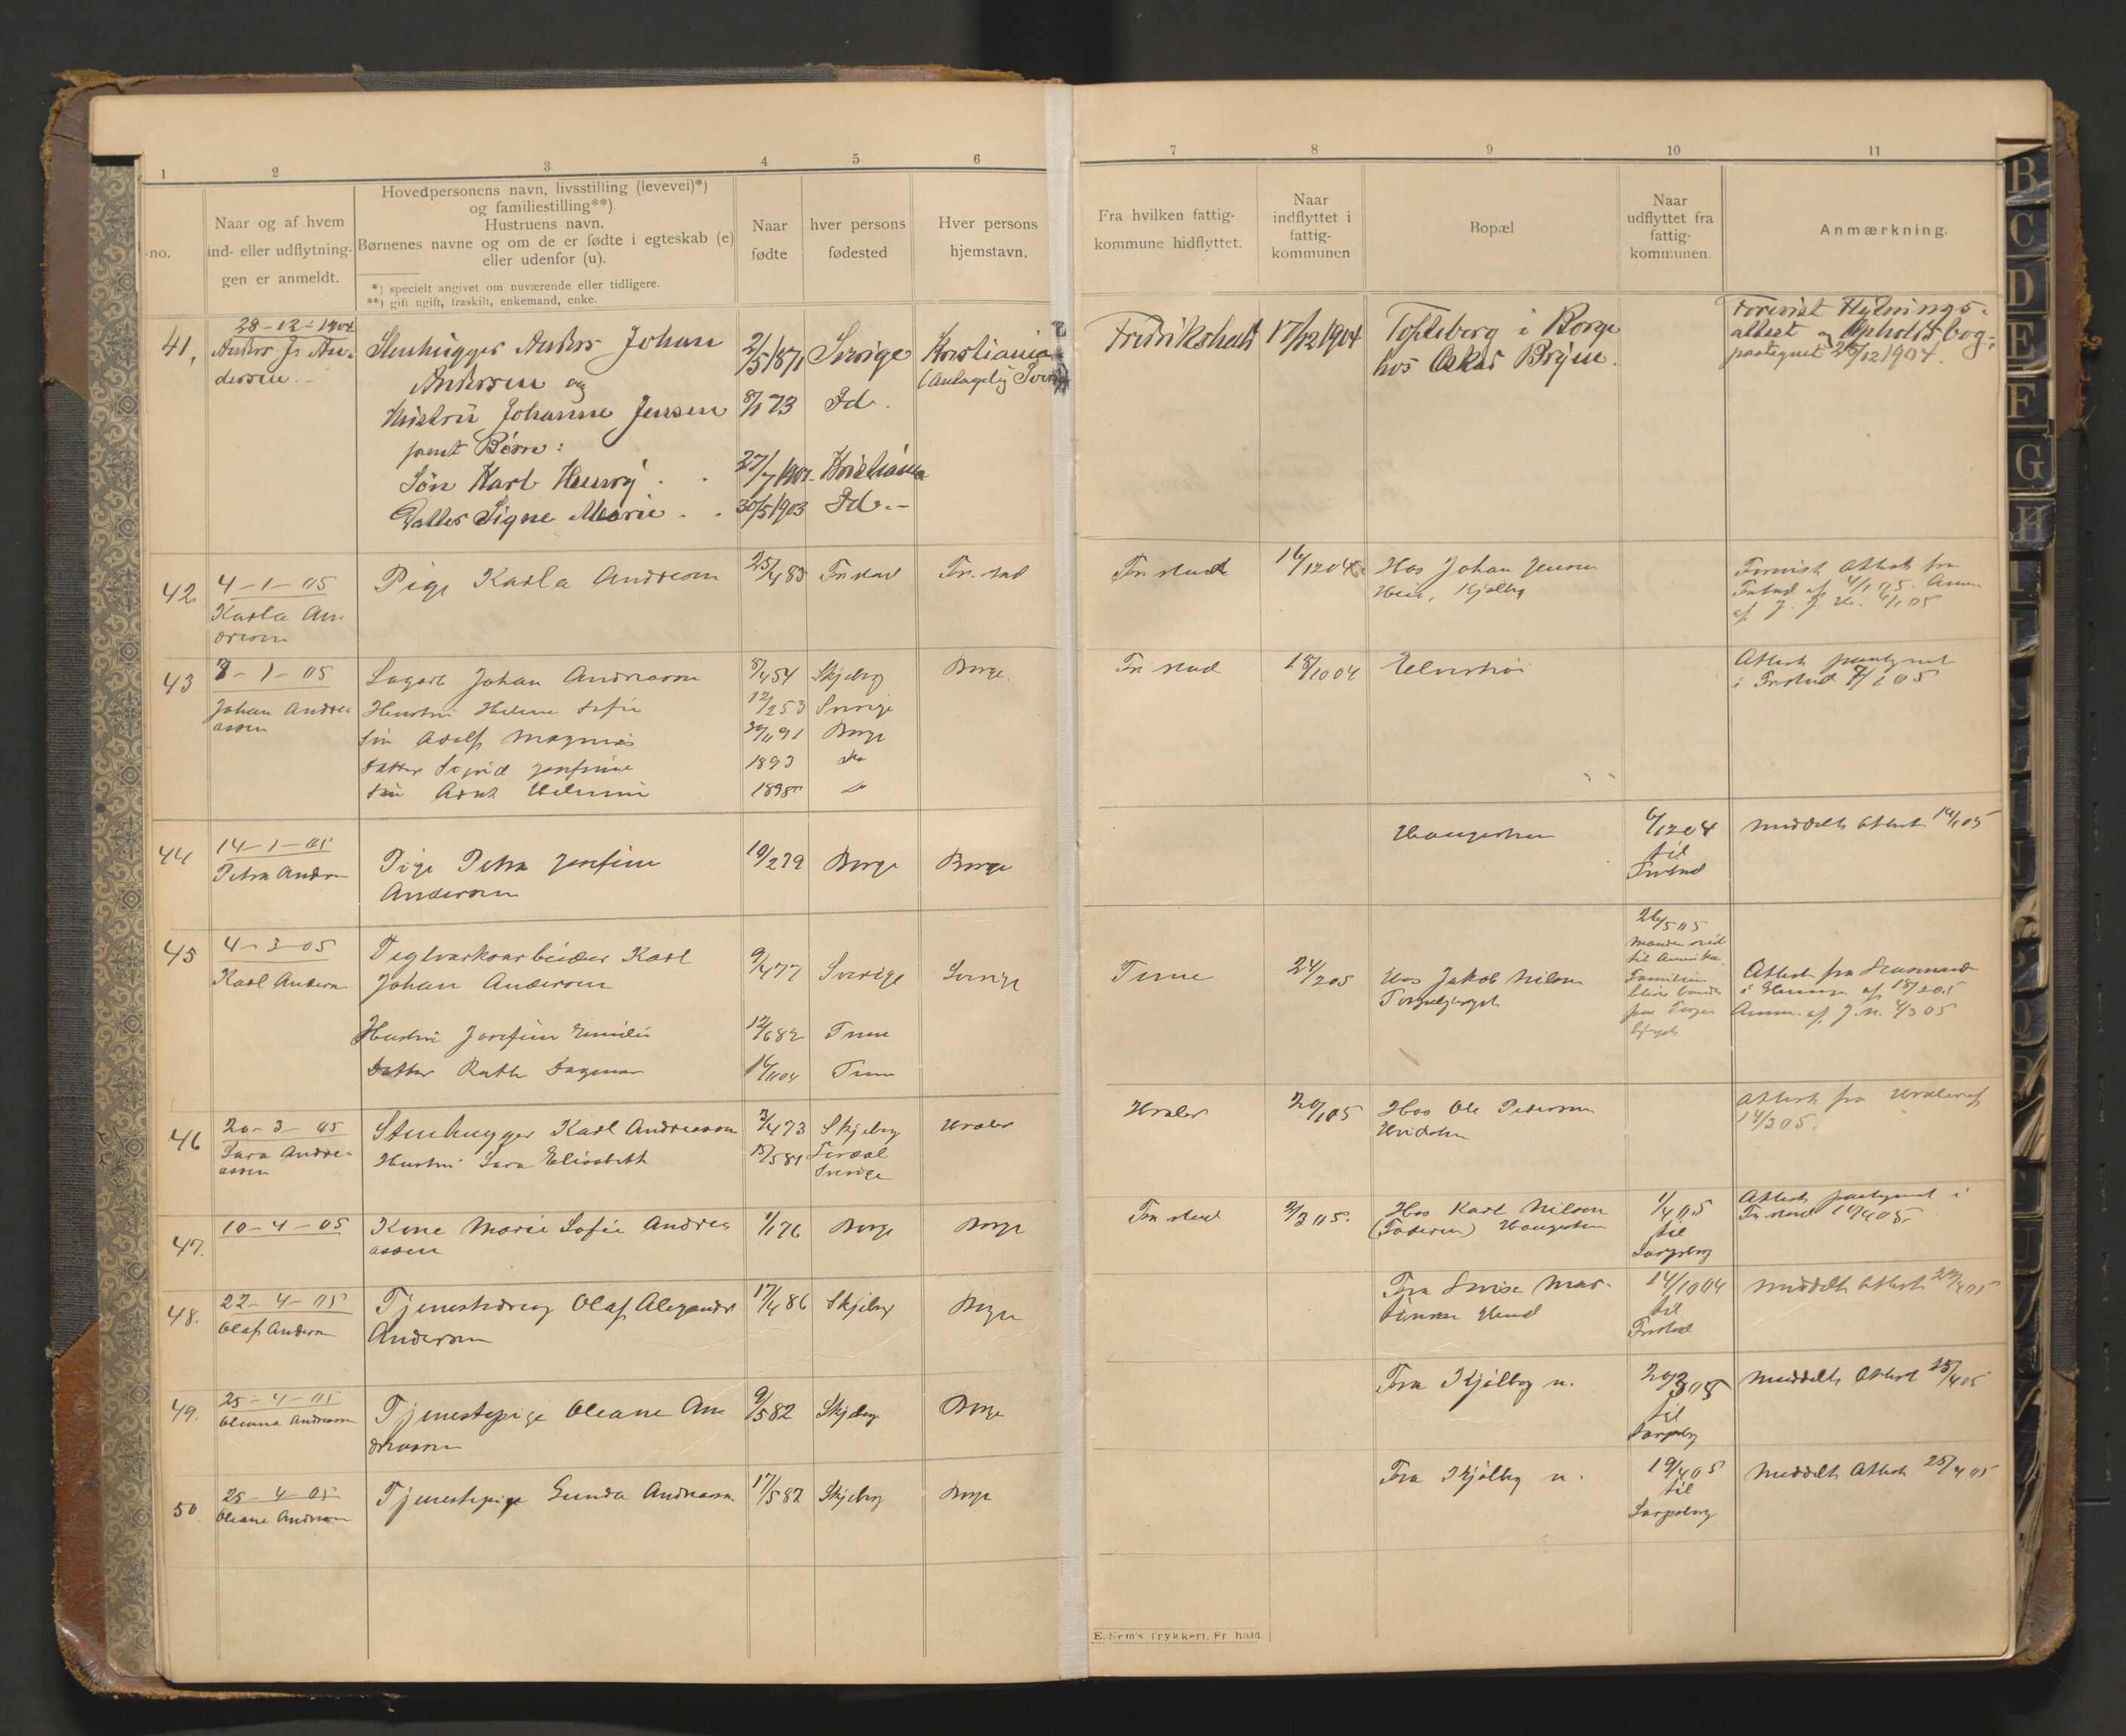 1 2 3 4 5 6 7 8 9 10 11
no.
Naar og af hvem
ind- eller udflytnin-
gen er anmeldt.
Hovedpersonens navn, livsstilling (levevei)*)
og familiestilling**).
Hustruens navn.
Børnenes navne og om de er fødte i egteskab (e)
eller udenfor (u).
*) specielt angivet om nuværende eller tidligere.
**) gift ugift, fraskilt, enkemand, enke.
Naar
fødte
hver persons
fødested
Hver persons
hjemstavn.
Fra hvilken fattig-
kommune hidflyttet.
Naar
indflyttet i
fattig-
kommunen
Bopæl
Naar
udflyttet fra
fattig-
kommunen.
Anmærkning.
41,
28-12-1904
Anders J. An-
dersen.
Stenhugger Anders Johan
Andersen og
Hustru Johanne Jensen
samt Børn:
Søn Karl Henry
Datter Signe Marie
2/5 1871 Sverige
8/1 73 Id.
27/7 1902. Kristiania
30/5 1903 Id.
Kristiania
(Antagelig Sverige
Fredrikshald 17/12 1904
Tofteberg i Borge
hos Oskar Bryn.
Forevist Flytnings-
attest og Opholdsbog,
paategnet 28/12 1904.
42
4-1-05
Karla An-
dresen
Pige Karla Andresen
25/4 85 Fr.stad Fr.stad
Fr.stad 16/12 04
Hos Johan Jensen
Kjølby
Forevist Attest fra
Fr.stad af 4/1 05.
43
7-1-05
Johan Andre-
assen
Johan Andreassen
Hustru Helene Sofie
Søn Adolf Magnus
Datter Sigrid Josefine
Søn
8/4 54 Skjeberg Borge.
12/2 53 Sverige
20/11 91 Borge
1893 do
1895
Fr.stad 18/10 04
Attest paategnet
i Fr.stad 7/1 05
44
14-1-05
Petra Andersen
Pige Petra Josefine
Andersen
19/2 79 Borge Borge
Haugesten
6/12 04
til
Fr.stad
Meddelt Attest 14/1 05
45
4-3-05
Karl Andersen
Teglverksarbeider Karl
Johan Andersen
Hustru Josefine Emilie
Datter Ruth Dagmar
9/4 77 Sverige Sverige
12/6 82 Tune
16/11 04 Tune
Tune 24/2 05
Hos Jakob Nilsen
26/5 05
Manden reist
til Amerika.
Familien
Attest fra Lensmanden
af 18/2 05
Anm. af J. N. 4/3 05
46
20-3-05
Sara Andre-
assen
Stenhugger Karl Andreassen
Hustru Sara Elisabeth
3/4 73 Skjeberg Hvaler
15/5 81
Sverige
Hvaler 20/1 05
Hos Ole Pedersen
Hvidsten
Attest fra Hvaler af
14/3 05.
47.
10-4-05
Kone Marie Sofie Andre-
assen
1/1 76 Borge Borge
Fr.stad 2/3 05.
Hos Karl Nilsen
(Faderen) Haugesten
1/4 05
til
Sarpsborg
Attest paategnet i
Fr.stad 10/4 05.
48.
22-4-05
Olaf Andersen
Tjenestedreng Olaf Alexander
Andersen
17/4 86 Skjeberg Borge
Fra Lovise Mar-
tinsen Hund
14/10 04
til
Fr.stad
Meddelt Attest 22/4 05
49.
25-4-05
Oleane Andreassen
Tjenestepige Oleane An-
dreassen
9/5 82 Skjeberg Borge
Fra Kjølby n.
20/3 05
til
Sarpsborg
Meddelt Attest 25/4 05
50.
25-4-05
Oleane Andreassen
Tjenestepige Gunda Andreassen
17/5 82 Skjeberg Borge
Fra Kjølby n.
19/4 05
til
Sarpsborg
Meddelt Attest 25/4 05
E. Sem's Trykkeri, Fr.hald.
B
C
D
E
F
G
H